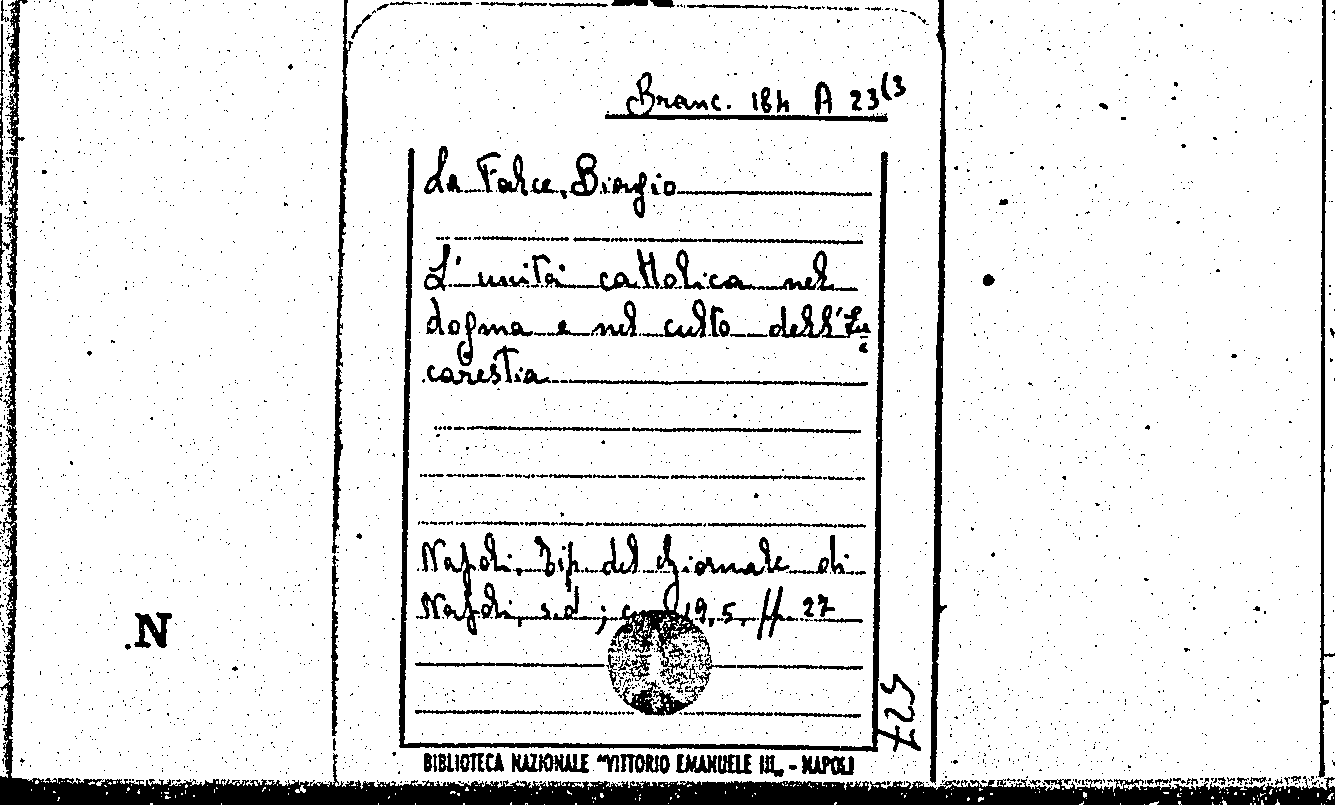 Branc. 184 A 23(3
La Falce, Biagio
L'unità cattolica nel
dogma e nel culto dell'Eu=
carestia
Napoli, Tip. del Giornale di
Napoli, s.d.; cm 19,5, pp. 27
.N
527
BIBLIOTECA NAZIONALE "VITTORIO EMANUELE III„ - NAPOLI